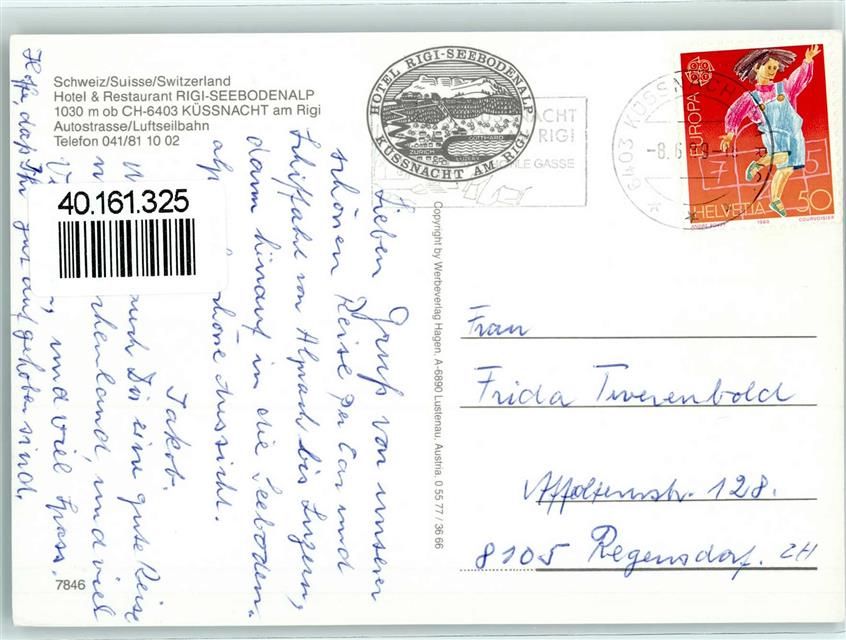 Schweiz/Suisse/Switzerland
Hotel & Restaurant RIGI-SEEBODENALP
1030 m ob CH-6403 KÜSSNACHT am Rigi
Autostrasse/Luftseilbahn
Telefon 041/81 10 02
HOTEL RIGI-SEEBODENALP
ZÜRICH
GOTTHARD
LUZERN
KÜSSNACHT AM RIGI
ACHT
RIGI
HOHLE GASSE
6403 KÜSSNACHT
-8.6.89
EUROPA
CEPT
7 5
HELVETIA 50
1989
COURVOISIER
40.161.325
Lieben Gruss von unserer
schönen Reise per Car und
Schiffahrt von Alpnach bis Luzern,
dann hinauf in die Seeboden-
alp schöne Aussicht.
Jakob.
auch Dir eine gute Reise
chenland, und viel
und viel Spass.
Hoffe, dass Ihr gut aufgehoben sind.
Copyright by Werbeverlag Hagen, A-6890 Lustenau, Austria, 0 55 77 / 36 66
Frau
Frida Twerenbold
Affolternstr. 128.
8105 Regensdorf. ZH
7846